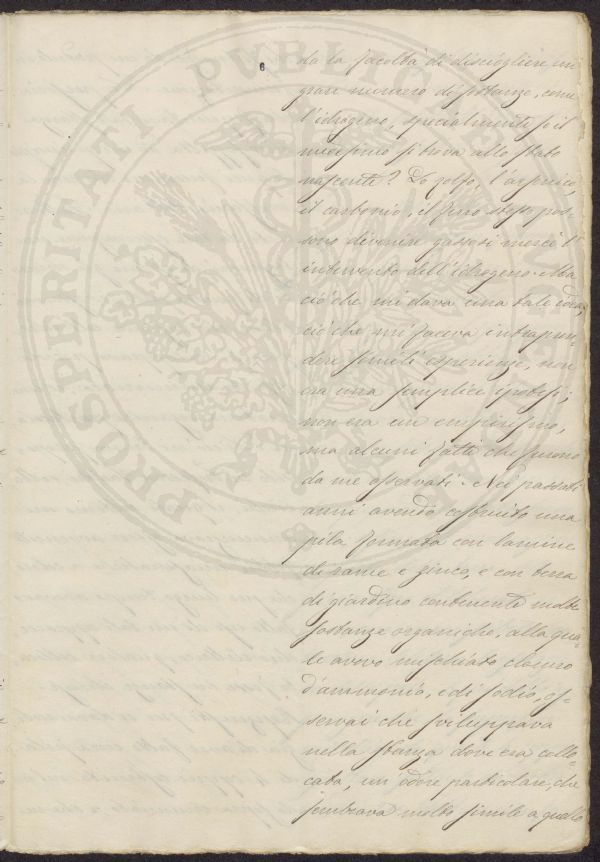 6
da la facoltà di disciogliere un
gran numero di sostanze, come
l'idrogeno, specialmente se il
medesimo si trova allo stato
nascente? Lo zolfo, l'arsenico,
il carbonio, il ferro stesso pos-
sono divenire gassosi mercè l'
intervento dell'idrogeno. Ma
ciò che mi dava una tale idea,
ciò che mi faceva intrapren-
dere simili esperienze, non
era una semplice ipotesi;
non era un empirismo,
ma alcuni fatti che furono
da me osservati. Nei passati
anni avendo costruito una
pila formata con lamine
di rame e zinco, e con terra
di giardino contenente molte
sostanze organiche, alla qua-
le avevo mischiato cloruro
d'ammonio, e di sodio, os-
servai che sviluppava
nella stanza dove era collo-
cata, un odore particolare, che
sembrava molto simile a quello
PROSPERITATI PUBLICAE